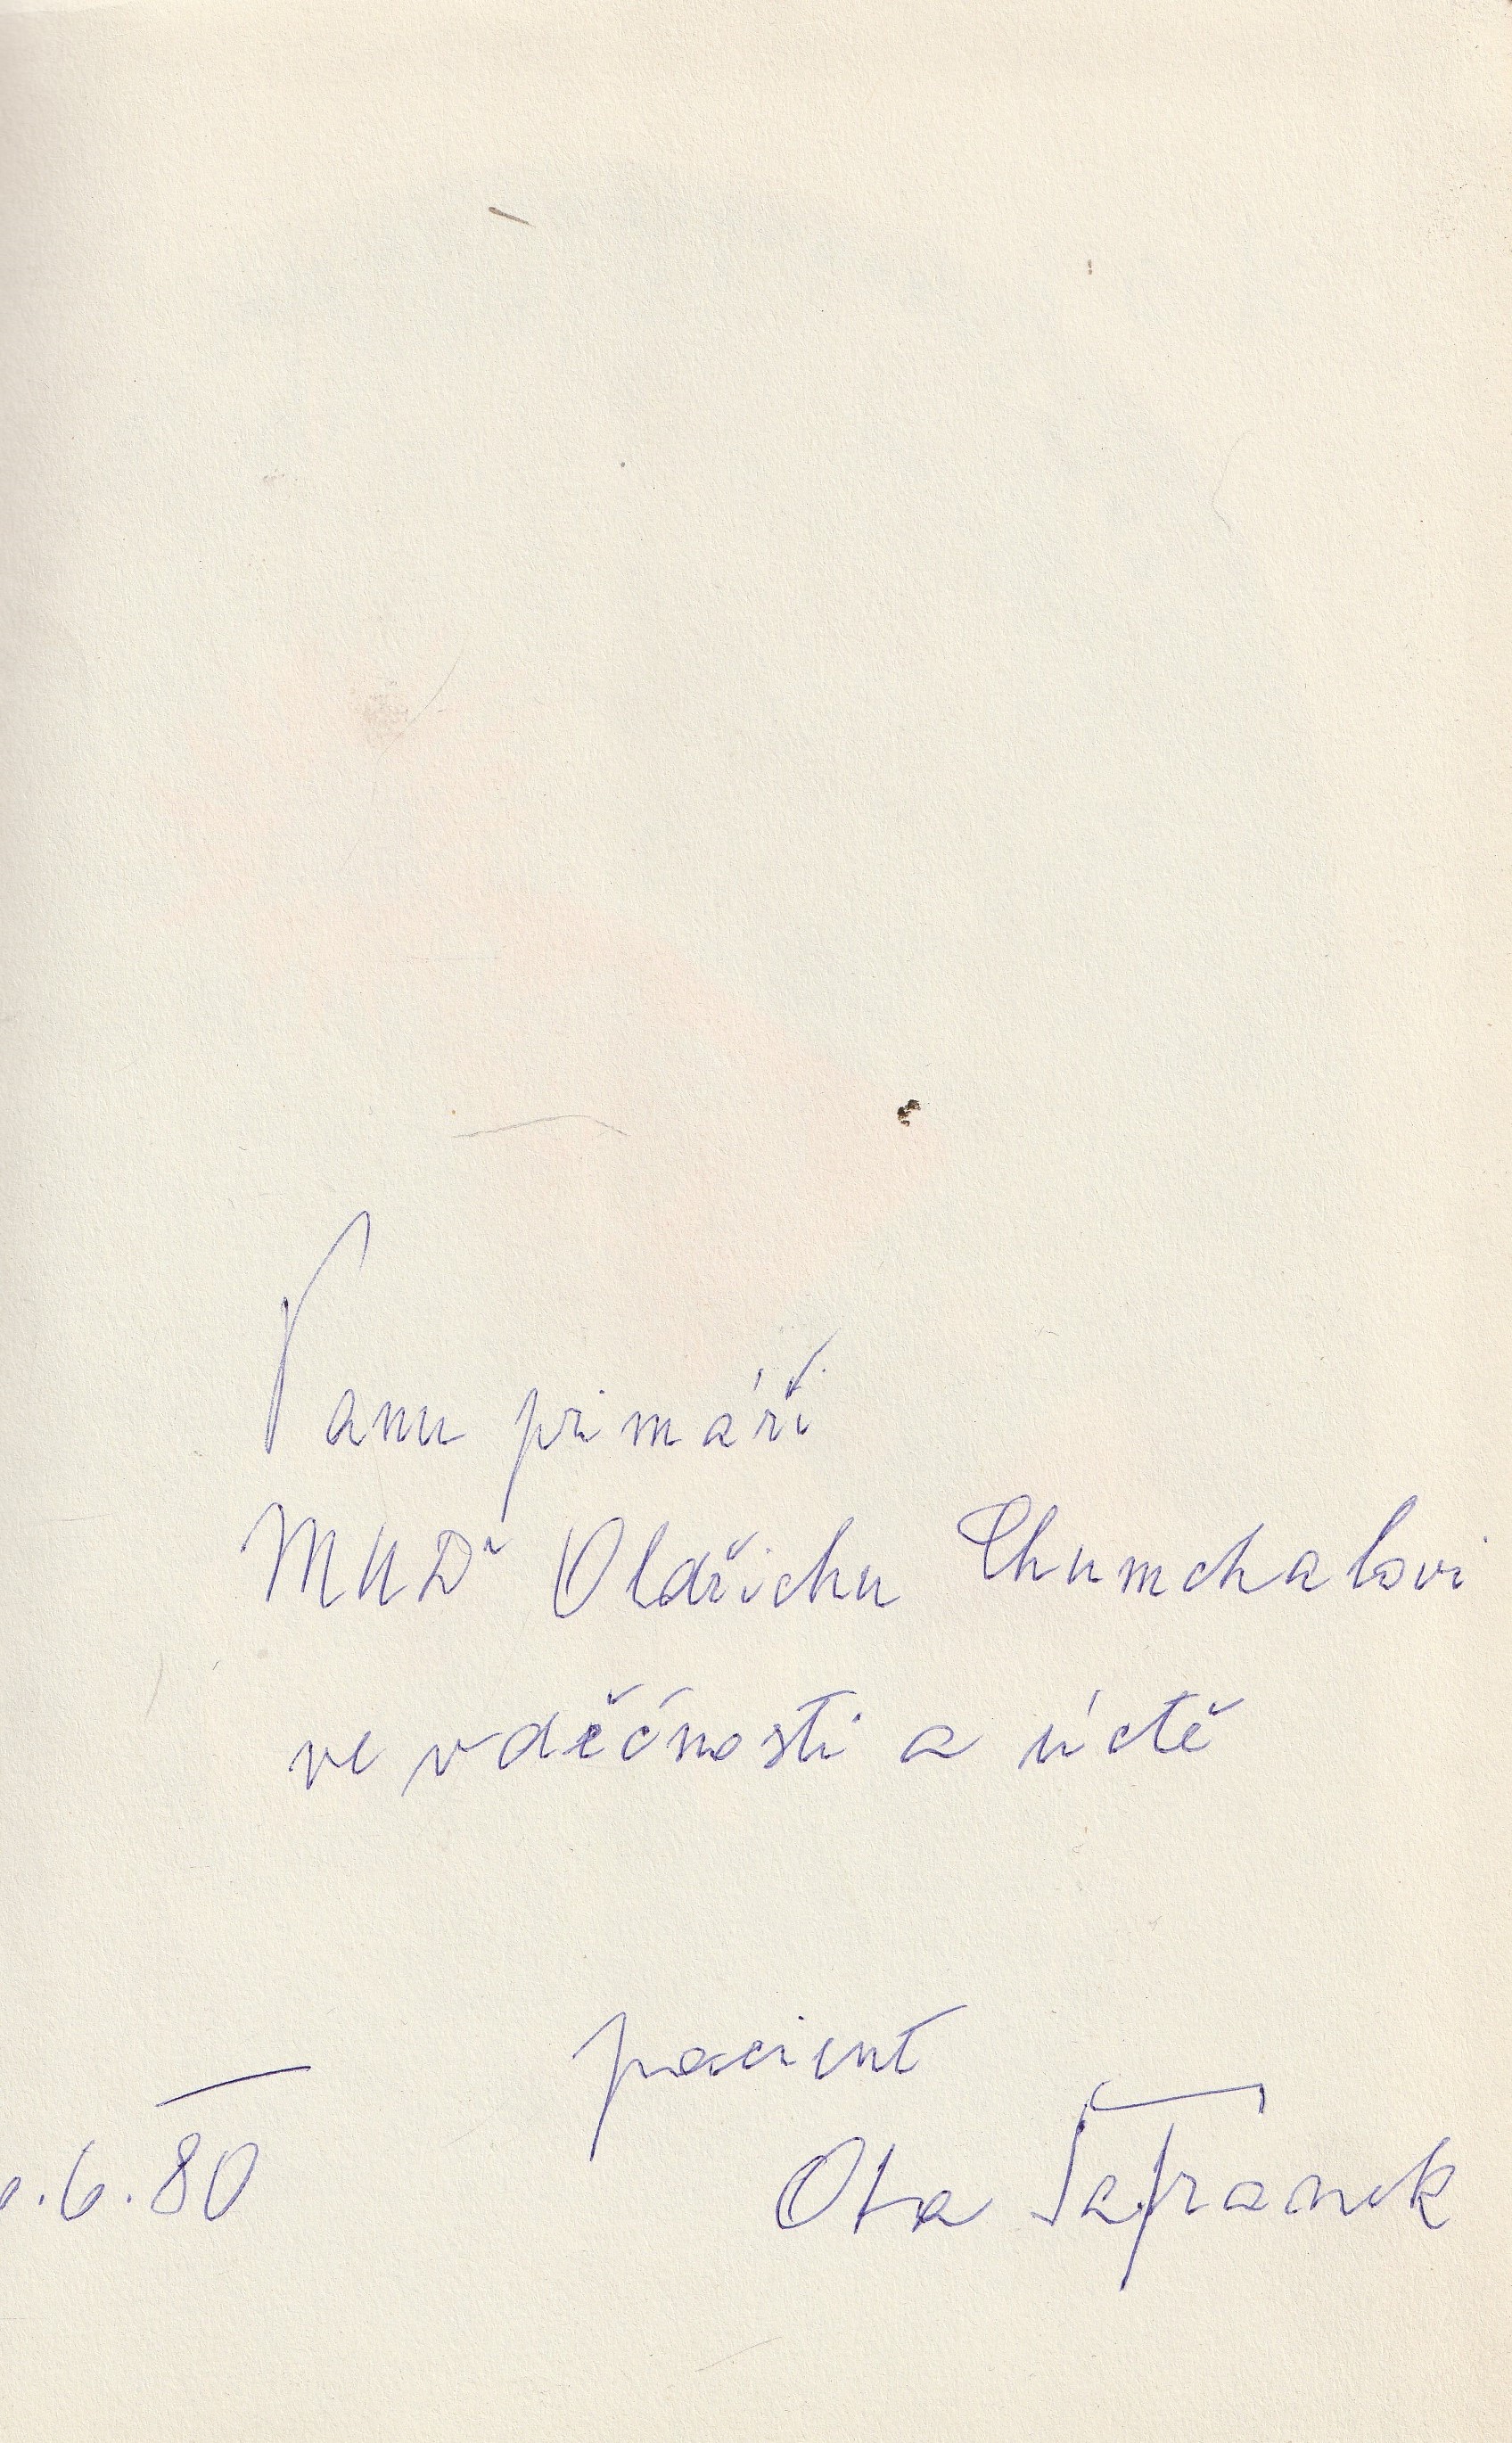 Panu primáři
MUDr Oldřichu Chumchalovi
ve vděčnosti a úctě
pacient
.6.80
Ota Šafránek